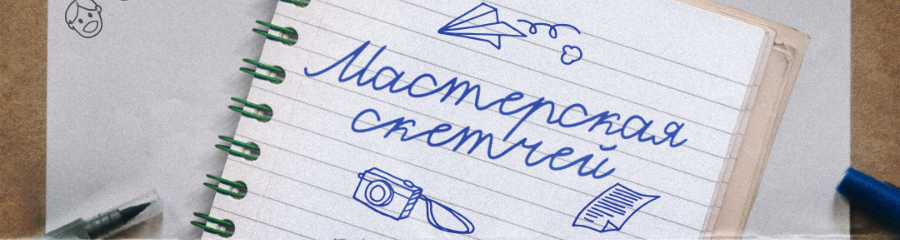 Мастерская
скетчей